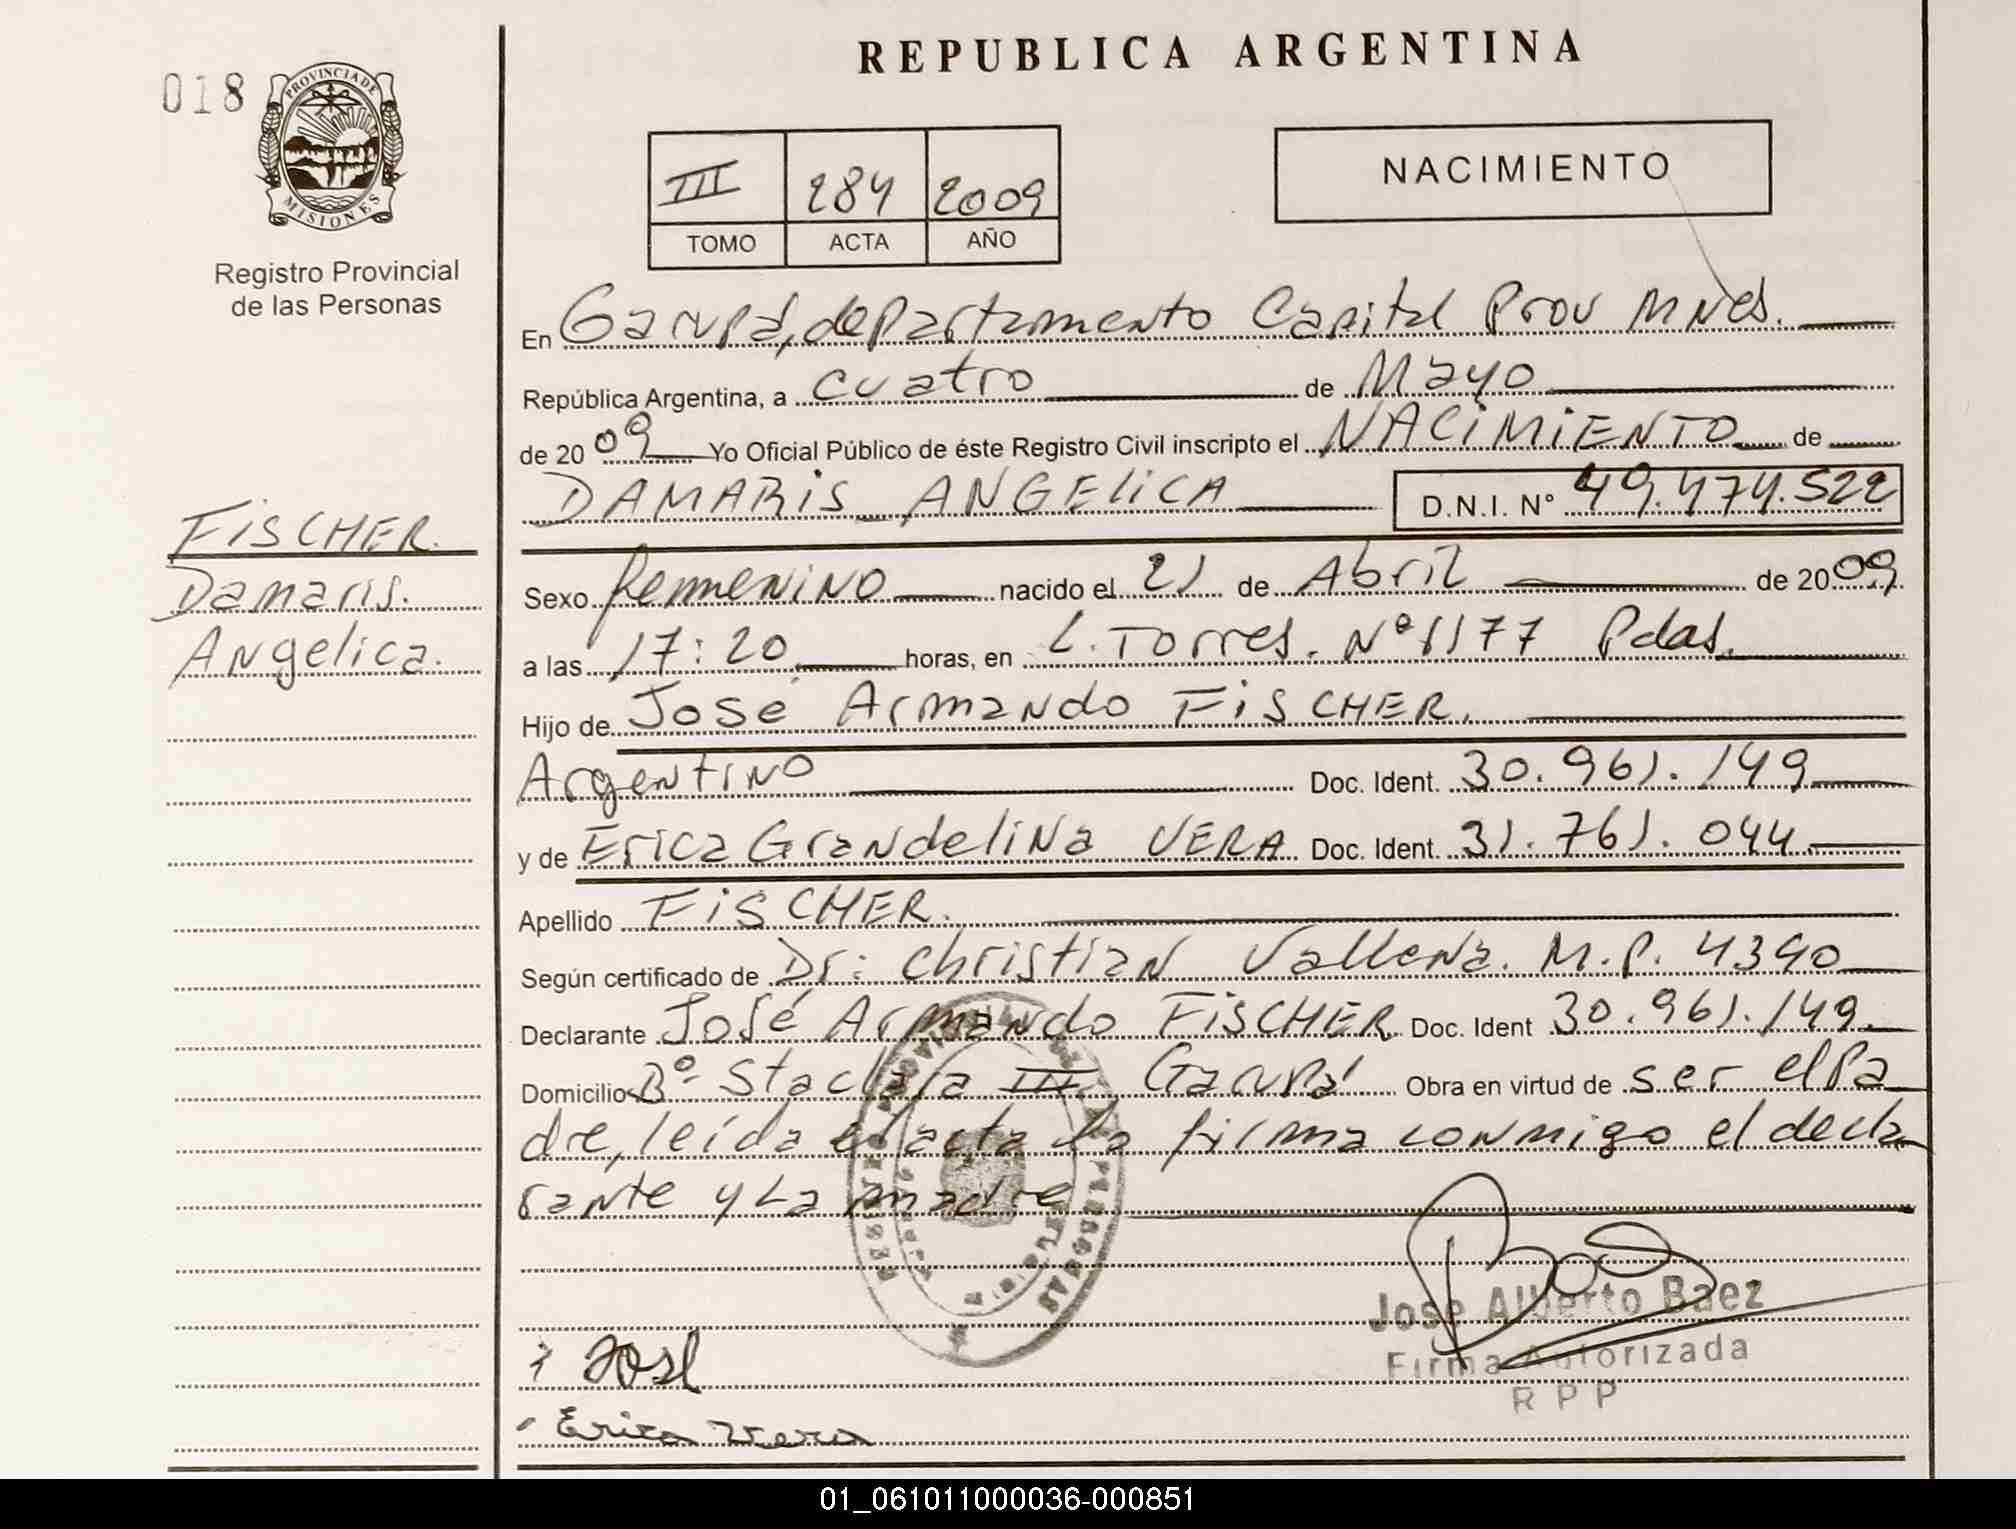 REPUBLICA ARGENTINA
018
PROVINCIA DE
MISIONES
Registro Provincial
de las Personas
III 284 2009
TOMO ACTA AÑO
NACIMIENTO
En Garupá, departamento Capital Prov Mnes.
República Argentina, a cuatro de Mayo
de 2009 Yo Oficial Público de éste Registro Civil inscripto el NACIMIENTO de
DAMARIS ANGELICA D.N.I. N° 49.474.522
FISCHER.
Damaris.
Angelica.
Sexo femenino nacido el 21 de Abril de 2009
a las 17:20 horas, en L. Torres. N° 1177 Pdas.
Hijo de José Armando FISCHER.
Argentino Doc. Ident. 30.961.149
y de Erica Grandelina VERA Doc. Ident. 31.761.044
Apellido FISCHER.
Según certificado de Dr: Christian M.P. 4390
Declarante José Armando FISCHER Doc. Ident 30.961.149
Domicilio B° Sta clara III Garupá Obra en virtud de ser el Pa
dre, leída el acta la firma conmigo el decla
rante y La madre
José Alberto Baez
Firma Autorizada
R P P
José
Erica Vera
01_061011000036-000851